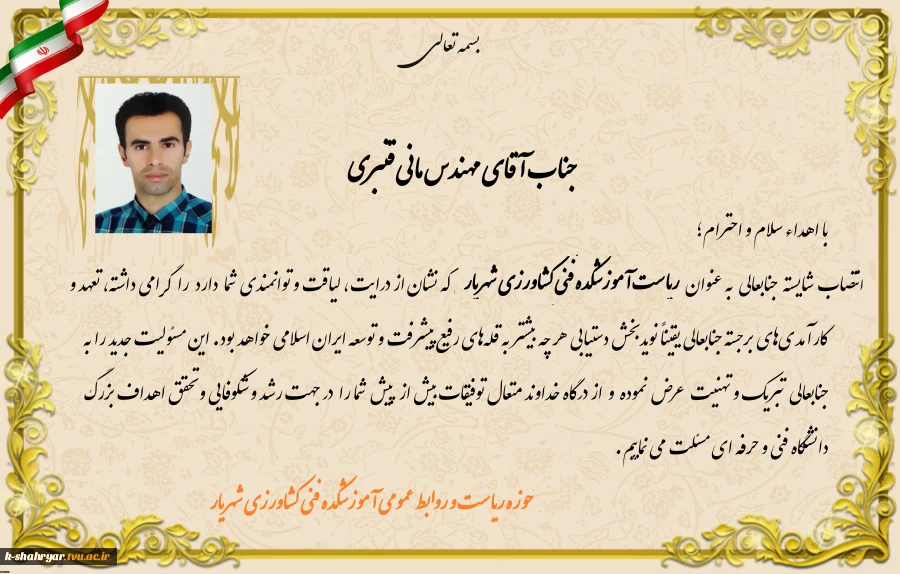 بسمه تعالی
جناب آقای مهندس مانی قنبری
با اهداء سلام و احترام ؛
انتصاب شایسته جنابعالی به عنوان ریاست آموزشکده فنی کشاورزی شهریار که نشان از درایت، لیاقت و توانمندی شما دارد را گرامی داشته، تعهد و
کارآمدی‌های برجسته جنابعالی یقیناً نویدبخش دستیابی هر چه بیشتر به قله‌های رفیع پیشرفت و توسعه ایران اسلامی خواهد بود. این مسئولیت جدید را به
جنابعالی تبریک و تهنیت عرض نموده و از درگاه خداوند متعال توفیقات بیش از پیش شما را در جهت رشد و شکوفایی و تحقق اهداف بزرگ
دانشگاه فنی و حرفه ای مسئلت می نماییم.
حوزه ریاست و روابط عمومی آموزشکده فنی کشاورزی شهریار
k-shahryar.tvu.ac.ir